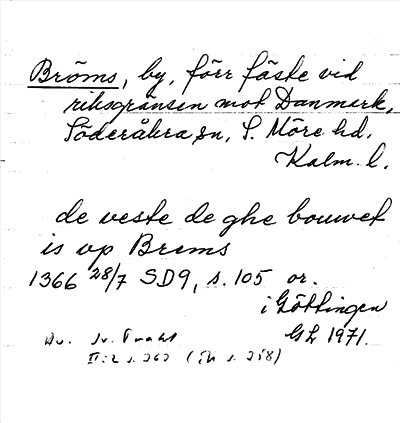 Bröms, by, förr fäste vid
riksgränsen mot Danmark,
Söderåkra sn, S. Möre hd,
Kalm. l.
de veste de ghe bouwet
is vp Brems
1366 28/7 SD9, s. 105 or.
i Göttingen
GL 1971.
Av. Sv. Trakt
II:2 s. 262 ( s. 258)